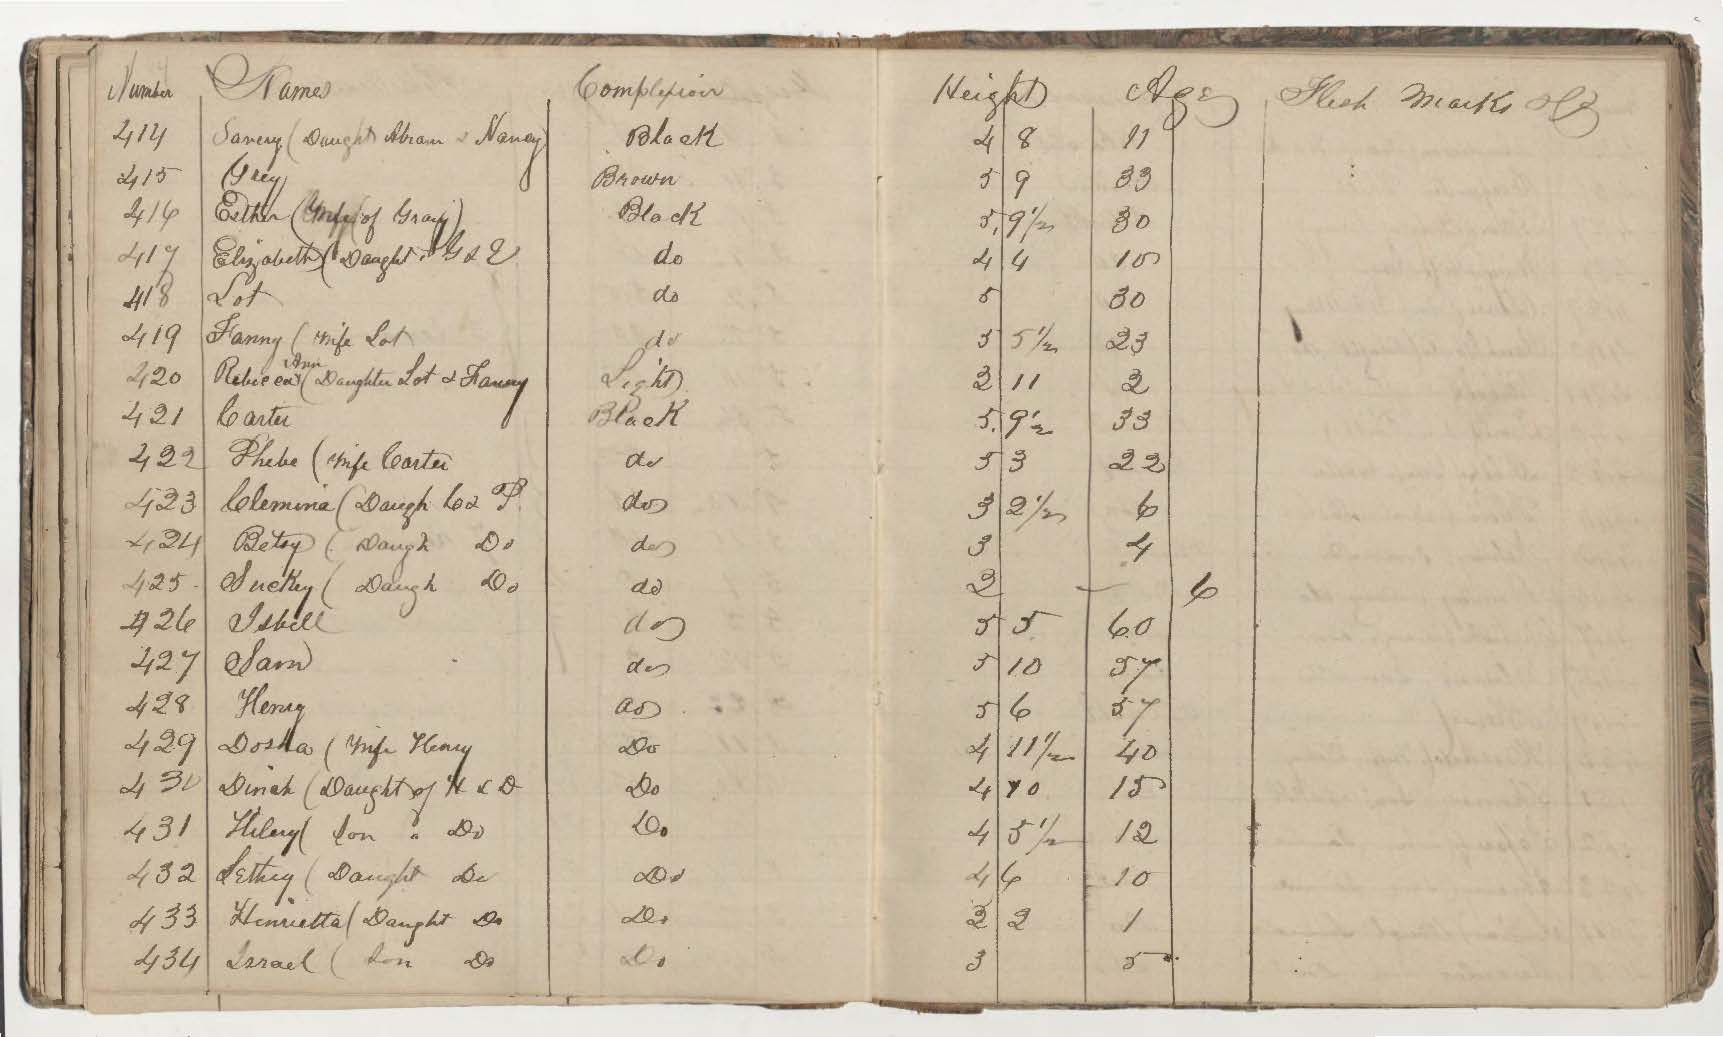 Number Names Complexion Height Age Flesh Marks &c
414 Savery (Daught Abram & Nancy) Black 4 8 11
415 Grey Brown 5 9 33
416 Esther (Wife of Gray) Black 5. 9 1/2 30
417 Elizabeth (Daught. G & E do 4 4 10
418 Lot do 5 30
419 Fanny (Wife Lot do 5 5 1/2 23
420 Rebecca Ann (Daughter Lot & Fanny Light 2 11 2
421 Carter Black 5. 9 1/2 33
422 Phebe (Wife Carter do 5 3 22
423 Clemina (Daugh C & P. do 3 2 1/2 6
424 Betsy (Daugh Do do 3 4
425 Suckey (Daugh Do do 2 - 6
426 Isbell do 5 5 60
427 Sam do 5 10 57
428 Henry do 5 6 57
429 Dosha (Wife Henry Do 4 11 1/2 40
430 Dinah (Daught of H & D Do 4 10 15
431 Hilery (Son " Do Do 4 5 1/2 12
432 Lethey (Daught Do Do 4 6 10
433 Henrietta (Daught Do Do 2 2 1
434 Israel (Son Do Do 3 5